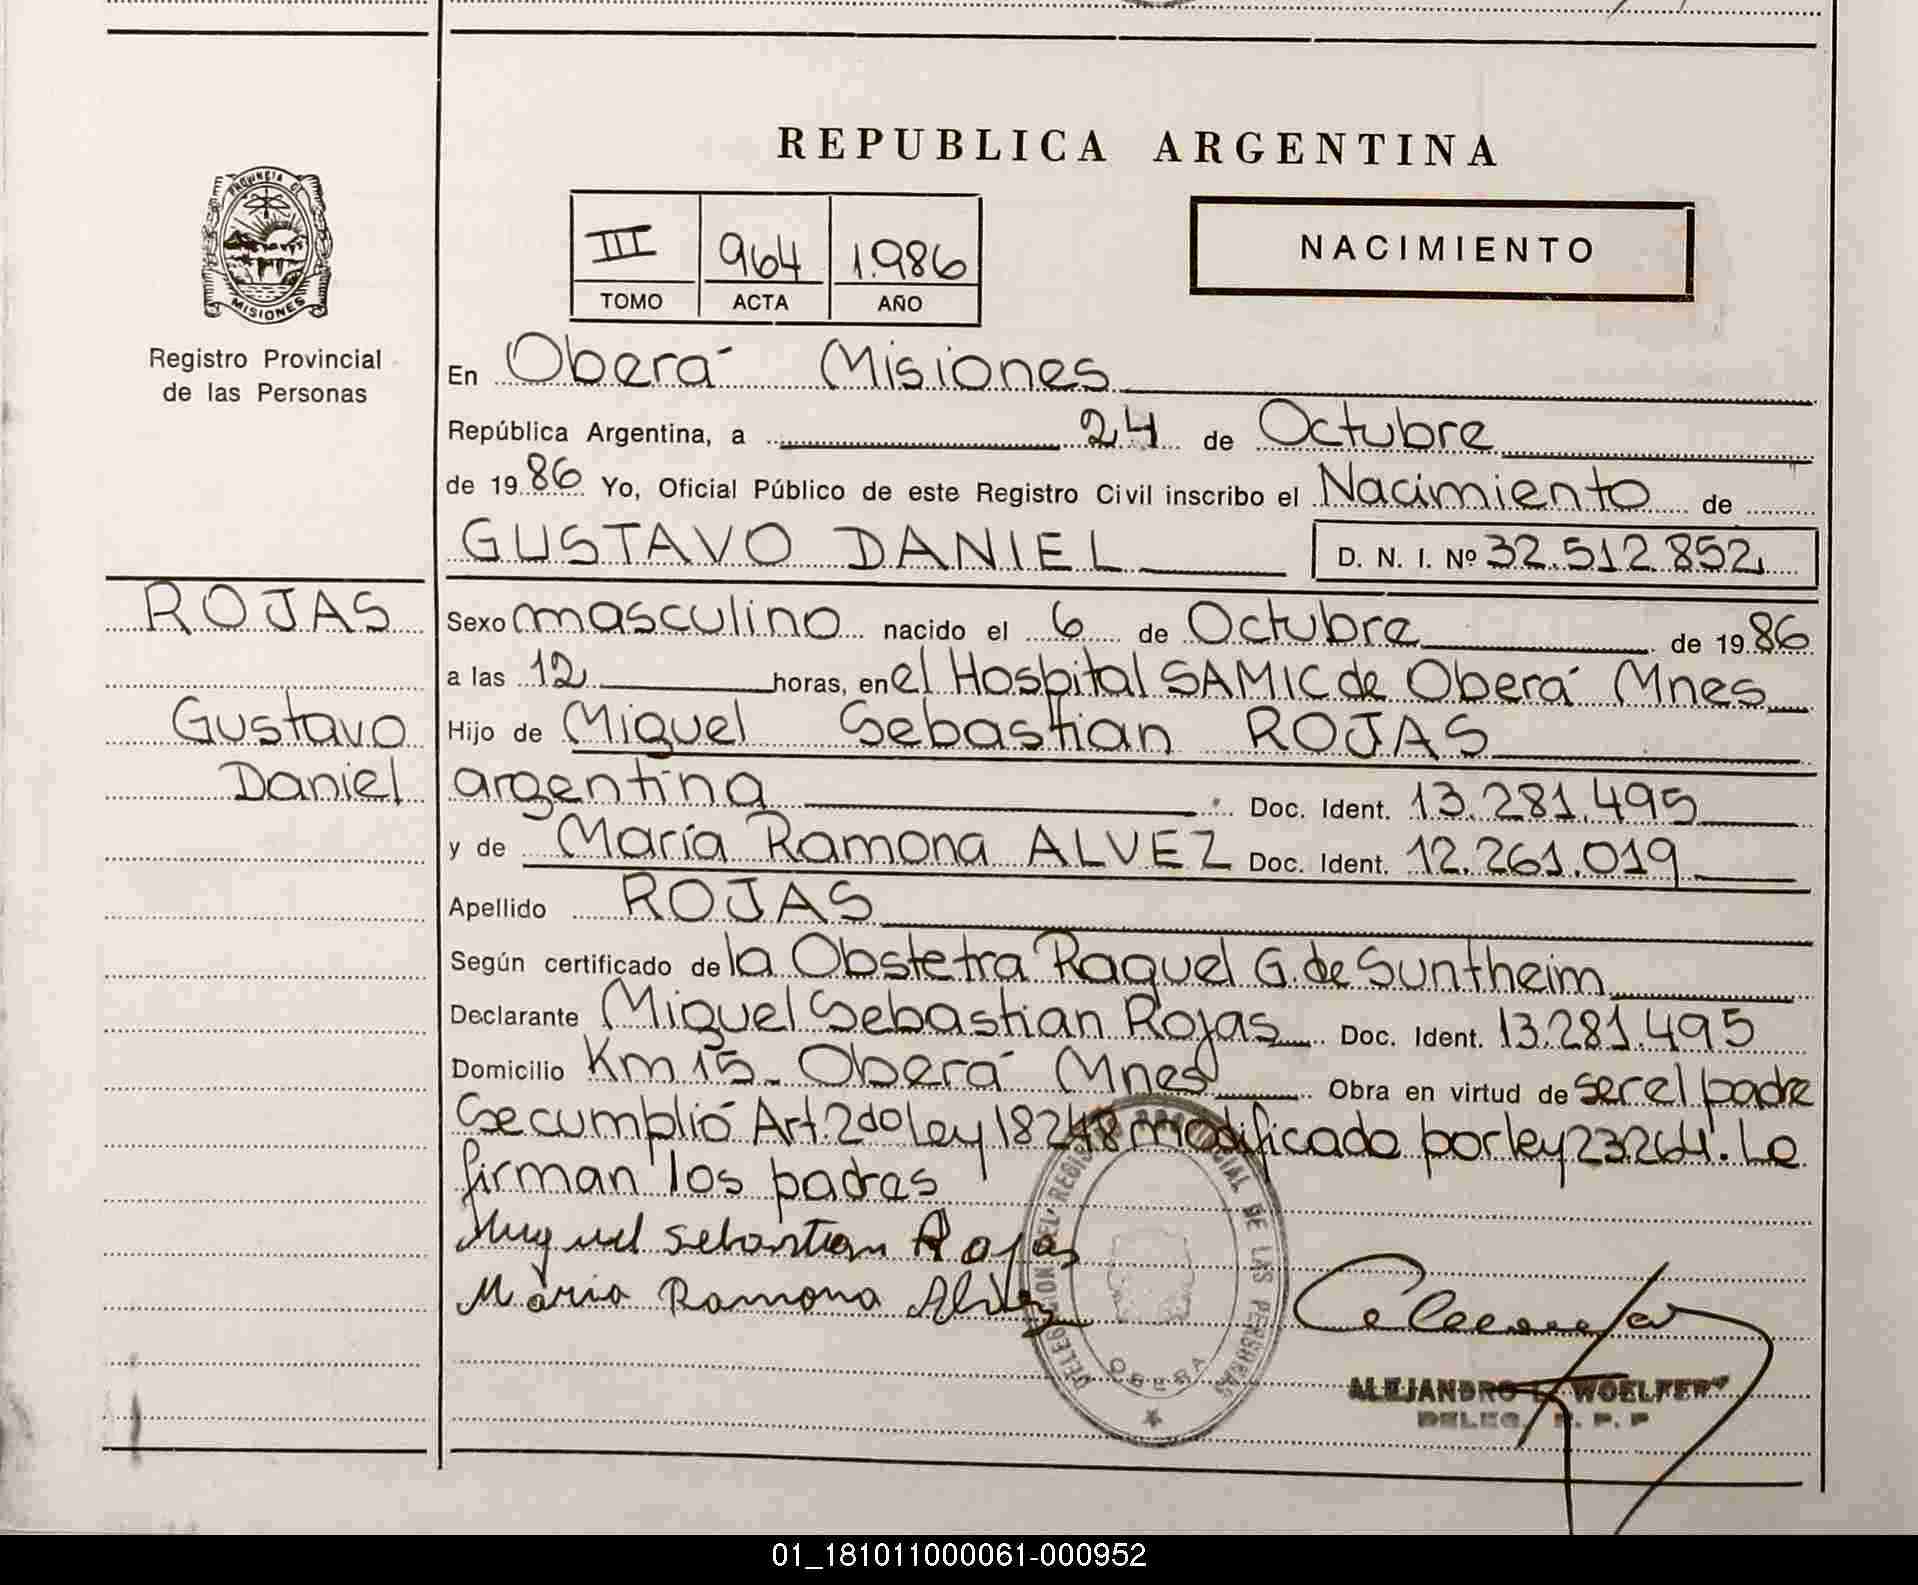 REPUBLICA ARGENTINA
PROVINCIA DE
MISIONES
Registro Provincial
de las Personas
III 964 1.986
TOMO ACTA AÑO
NACIMIENTO
En Oberá Misiones
República Argentina, a 24 de Octubre
de 1986 Yo, Oficial Público de este Registro Civil inscribo el Nacimiento de
GUSTAVO DANIEL D. N. I. Nº 32.512.852
ROJAS
Gustavo
Daniel
Sexo masculino nacido el 6 de Octubre de 1986
a las 12 horas, en el Hospital SAMIC de Oberá Mnes
Hijo de Miguel Sebastian ROJAS
argentina Doc. Ident. 13.281.495
y de María Ramona ALVEZ Doc. Ident. 12.261.019
Apellido ROJAS
Según certificado de la Obstetra Raquel G. de Suntheim
Declarante Miguel Sebastian Rojas Doc. Ident. 13.281.495
Domicilio Km 15 - Oberá Mnes Obra en virtud de ser el padre
Se cumplió Art. 2do Ley 18248 modificado por ley 23264. Lo
firman los padres
Miguel Sebastian Rojas
Maria Ramona Alvez
DELEGACION DEL REGISTRO PROVINCIAL DE LAS PERSONAS
OBERA
ALEJANDRO WOELFERT
DELEG. R. P. P
01_181011000061-000952